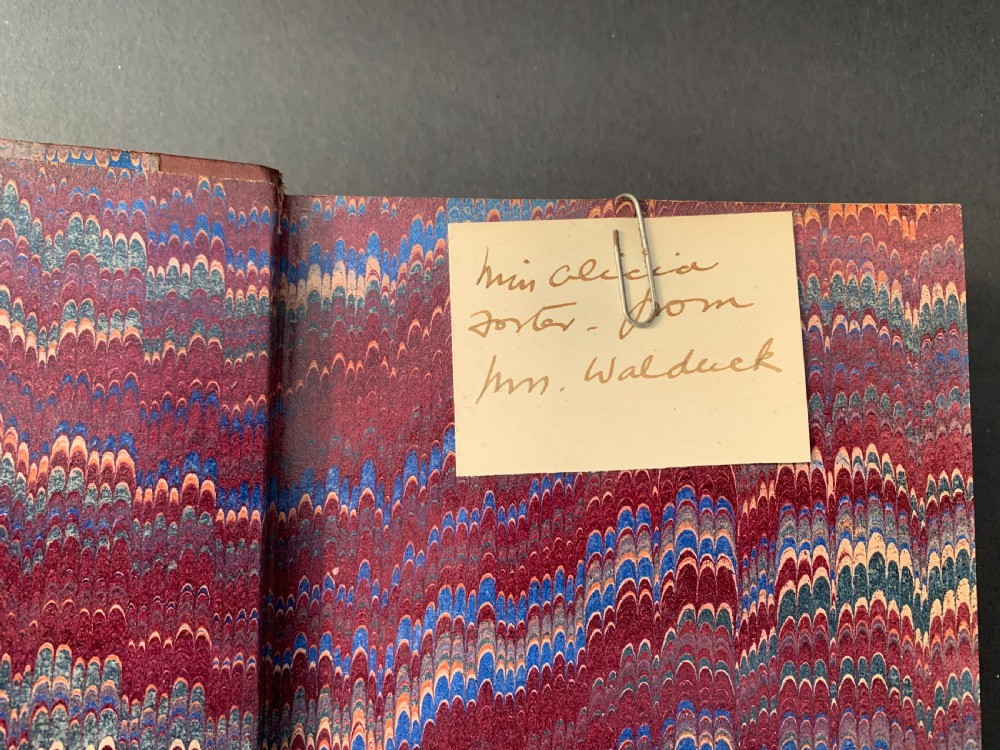 Miss Alicia
Foster - from
Mrs. Walduck